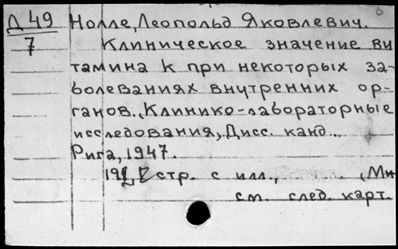 Д 49 Нолле, Леопольд Яковлевич.
7 Клиническое значение ви
тамина К при некоторых за-
болеваниях внутренних ор-
ганов. „Клинико-лабораторные
исследования", Дисс. канд...
Рига, 1947.
стр. с илл.,
см. след. карт.